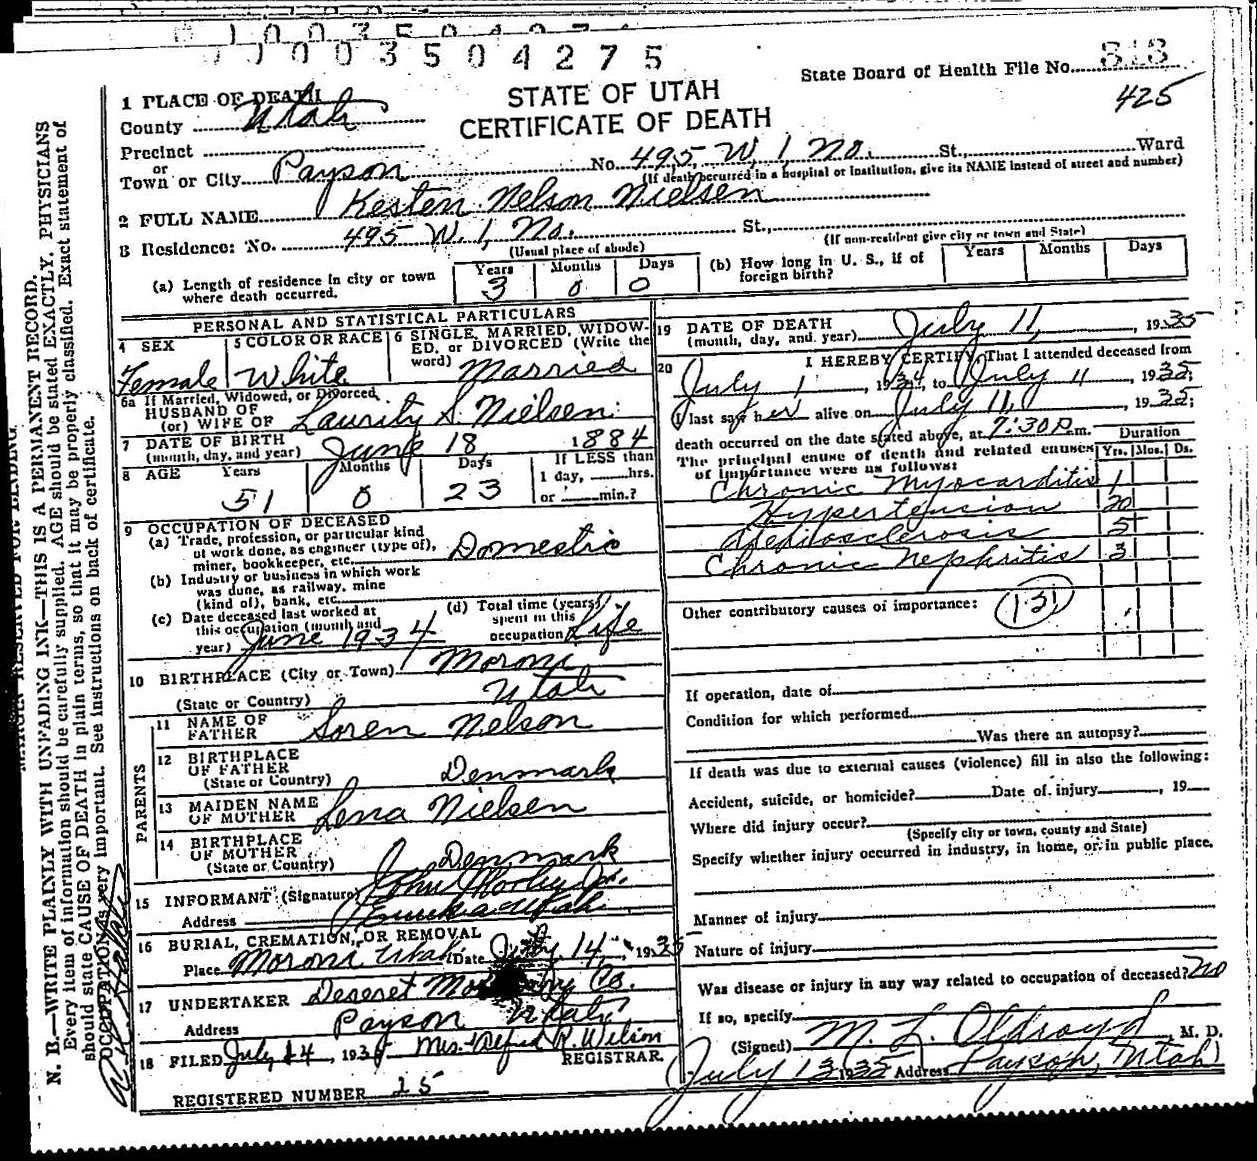 0003504275
State Board of Health File No. 813
425
STATE OF UTAH
CERTIFICATE OF DEATH
1 PLACE OF DEATH
County Utah
Precinct
or
Town or City Payson No. 495 W. 1, No. St., Ward
(If death occurred in a hospital or institution, give its NAME instead of street and number)
2 FULL NAME Kesten Nelson Nielsen
3 Residence: No. 495 W. 1, No. St.,
(Usual place of abode) (If non-resident give city or town and State)
(a) Length of residence in city or town where death occurred. Years 3 Months 0 Days 0
(b) How long in U. S., if of foreign birth? Years Months Days
PERSONAL AND STATISTICAL PARTICULARS
4 SEX Female
5 COLOR OR RACE White
6 SINGLE, MARRIED, WIDOWED, or DIVORCED (Write the word) Married
6a If Married, Widowed, or Divorced
HUSBAND OF
(or) WIFE OF Lauritz S. Nielsen
7 DATE OF BIRTH
(month, day, and year) June 18 1884
8 AGE Years 51 Months 0 Days 23 If LESS than 1 day, hrs. or min.?
9 OCCUPATION OF DECEASED
(a) Trade, profession, or particular kind of work done, as engineer (type of), miner, bookkeeper, etc. Domestic
(b) Industry or business in which work was done, as railway, mine (kind of), bank, etc.
(c) Date deceased last worked at this occupation (month and year) June 1934
(d) Total time (years) spent in this occupation Life
10 BIRTHPLACE (City or Town) Moroni
(State or Country) Utah
PARENTS
11 NAME OF FATHER Soren Nelson
12 BIRTHPLACE OF FATHER
(State or Country) Denmark
13 MAIDEN NAME OF MOTHER Lena Nielsen
14 BIRTHPLACE OF MOTHER
(State or Country) Denmark
15 INFORMANT (Signature) John Morley Jr.
Address Eureka Utah
16 BURIAL, CREMATION, OR REMOVAL
Place Moroni Utah Date July 14, 1935
17 UNDERTAKER Deseret Mortuary Co.
Address Payson Utah
18 FILED July 14, 1935 Mrs. Alfred R. Wilson
REGISTRAR.
REGISTERED NUMBER 25
19 DATE OF DEATH
(month, day, and year) July 11, 1935
20 I HEREBY CERTIFY, That I attended deceased from
July 1, 1934, to July 11, 1935;
I last saw her alive on July 11, 1935;
death occurred on the date stated above, at 7:30 P.m.
The principal cause of death and related causes of importance were as follows:
Duration
Yrs. Mos. Ds.
Chronic Myocarditis 1
Hypertension 20
Arteriosclerosis 5+
Chronic Nephritis 3
Other contributory causes of importance: 131
If operation, date of
Condition for which performed
Was there an autopsy?
If death was due to external causes (violence) fill in also the following:
Accident, suicide, or homicide? Date of injury , 19
Where did injury occur?
(Specify city or town, county and State)
Specify whether injury occurred in industry, in home, or in public place.
Manner of injury
Nature of injury
Was disease or injury in any way related to occupation of deceased? No
If so, specify
(Signed) M. L. Oldroyd, M. D.
July 13 1935 Address Payson, Utah
N. B.—WRITE PLAINLY WITH UNFADING INK—THIS IS A PERMANENT RECORD.
Every item of information should be carefully supplied. AGE should be stated EXACTLY. PHYSICIANS
should state CAUSE OF DEATH in plain terms, so that it may be properly classified. Exact statement of
OCCUPATION is very important. See instructions on back of certificate.
MARGIN RESERVED FOR BINDING.